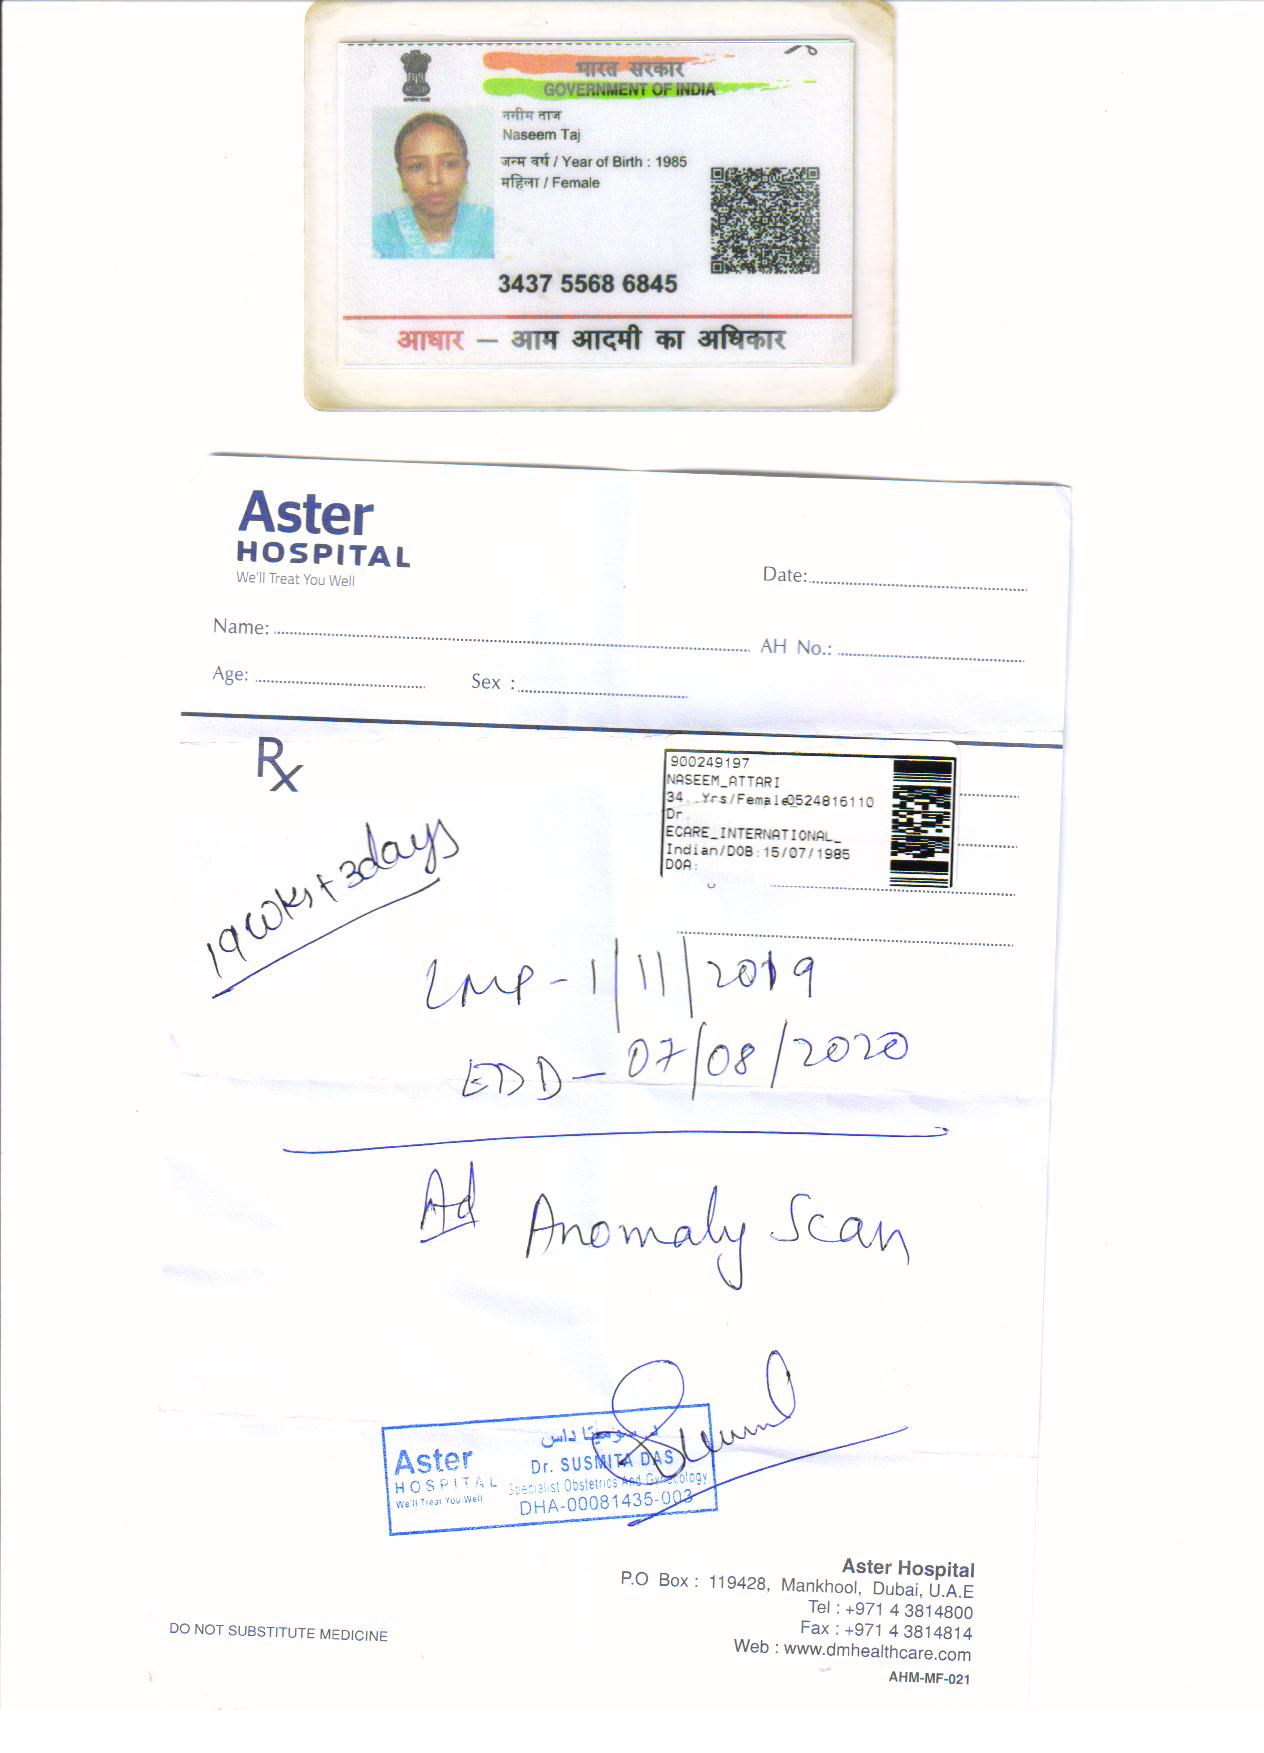 भारत सरकार
GOVERNMENT OF INDIA
नसीम ताज
Naseem Taj
जन्म वर्ष / Year of Birth : 1985
महिला / Female
3437 5568 6845
आधार – आम आदमी का अधिकार
Aster
HOSPITAL
We'll Treat You Well
Date:
Name:
AH No.:
Age:
Sex :
Rx
900249197
NASEEM_ATTARI
34..Yrs/Female0524816110
Dr.
ECARE_INTERNATIONAL_
Indian/DOB:15/07/1985
DOA:
19 wks + 3days
LMP - 1/11/2019
EDD - 07/08/2020
Ad Anomaly Scan
د. سوسميتا داس
Aster
HOSPITAL
We'll Treat You Well
Dr. SUSMITA DAS
Specialist Obstetrics And Gynecology
DHA-00081435-003
Aster Hospital
P.O Box : 119428, Mankhool, Dubai, U.A.E
Tel : +971 4 3814800
Fax : +971 4 3814814
Web : www.dmhealthcare.com
DO NOT SUBSTITUTE MEDICINE
AHM-MF-021